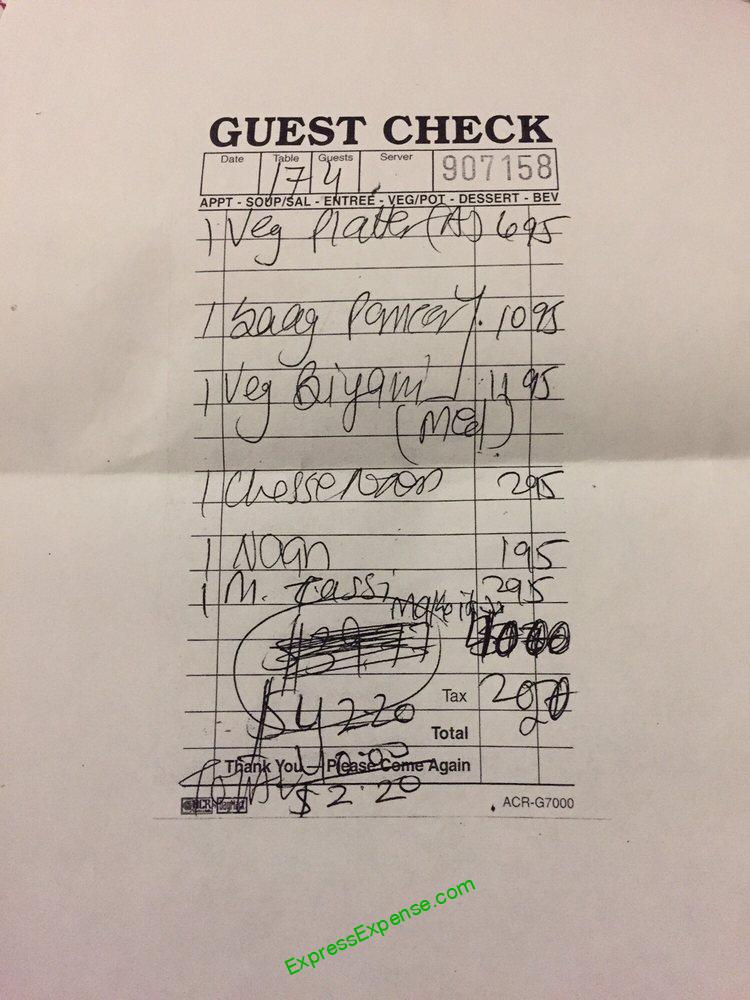 GUEST CHECK
Date Table Guests Server
17 4 907158
APPT - SOUP/SAL - ENTREÉ - VEG/POT - DESSERT - BEV
1 Veg Platter (A) 695
1 Saag Paneer 1095
1 Veg Biyani 1195
(Med)
1 Chesse Naan 295
1 Naan 195
1 M. Lassi 295
Make it
$39.
Tax
$42 20
Total
40.00
Thank You — Please Come Again
$2.20
ACR-G7000
ExpressExpense.com